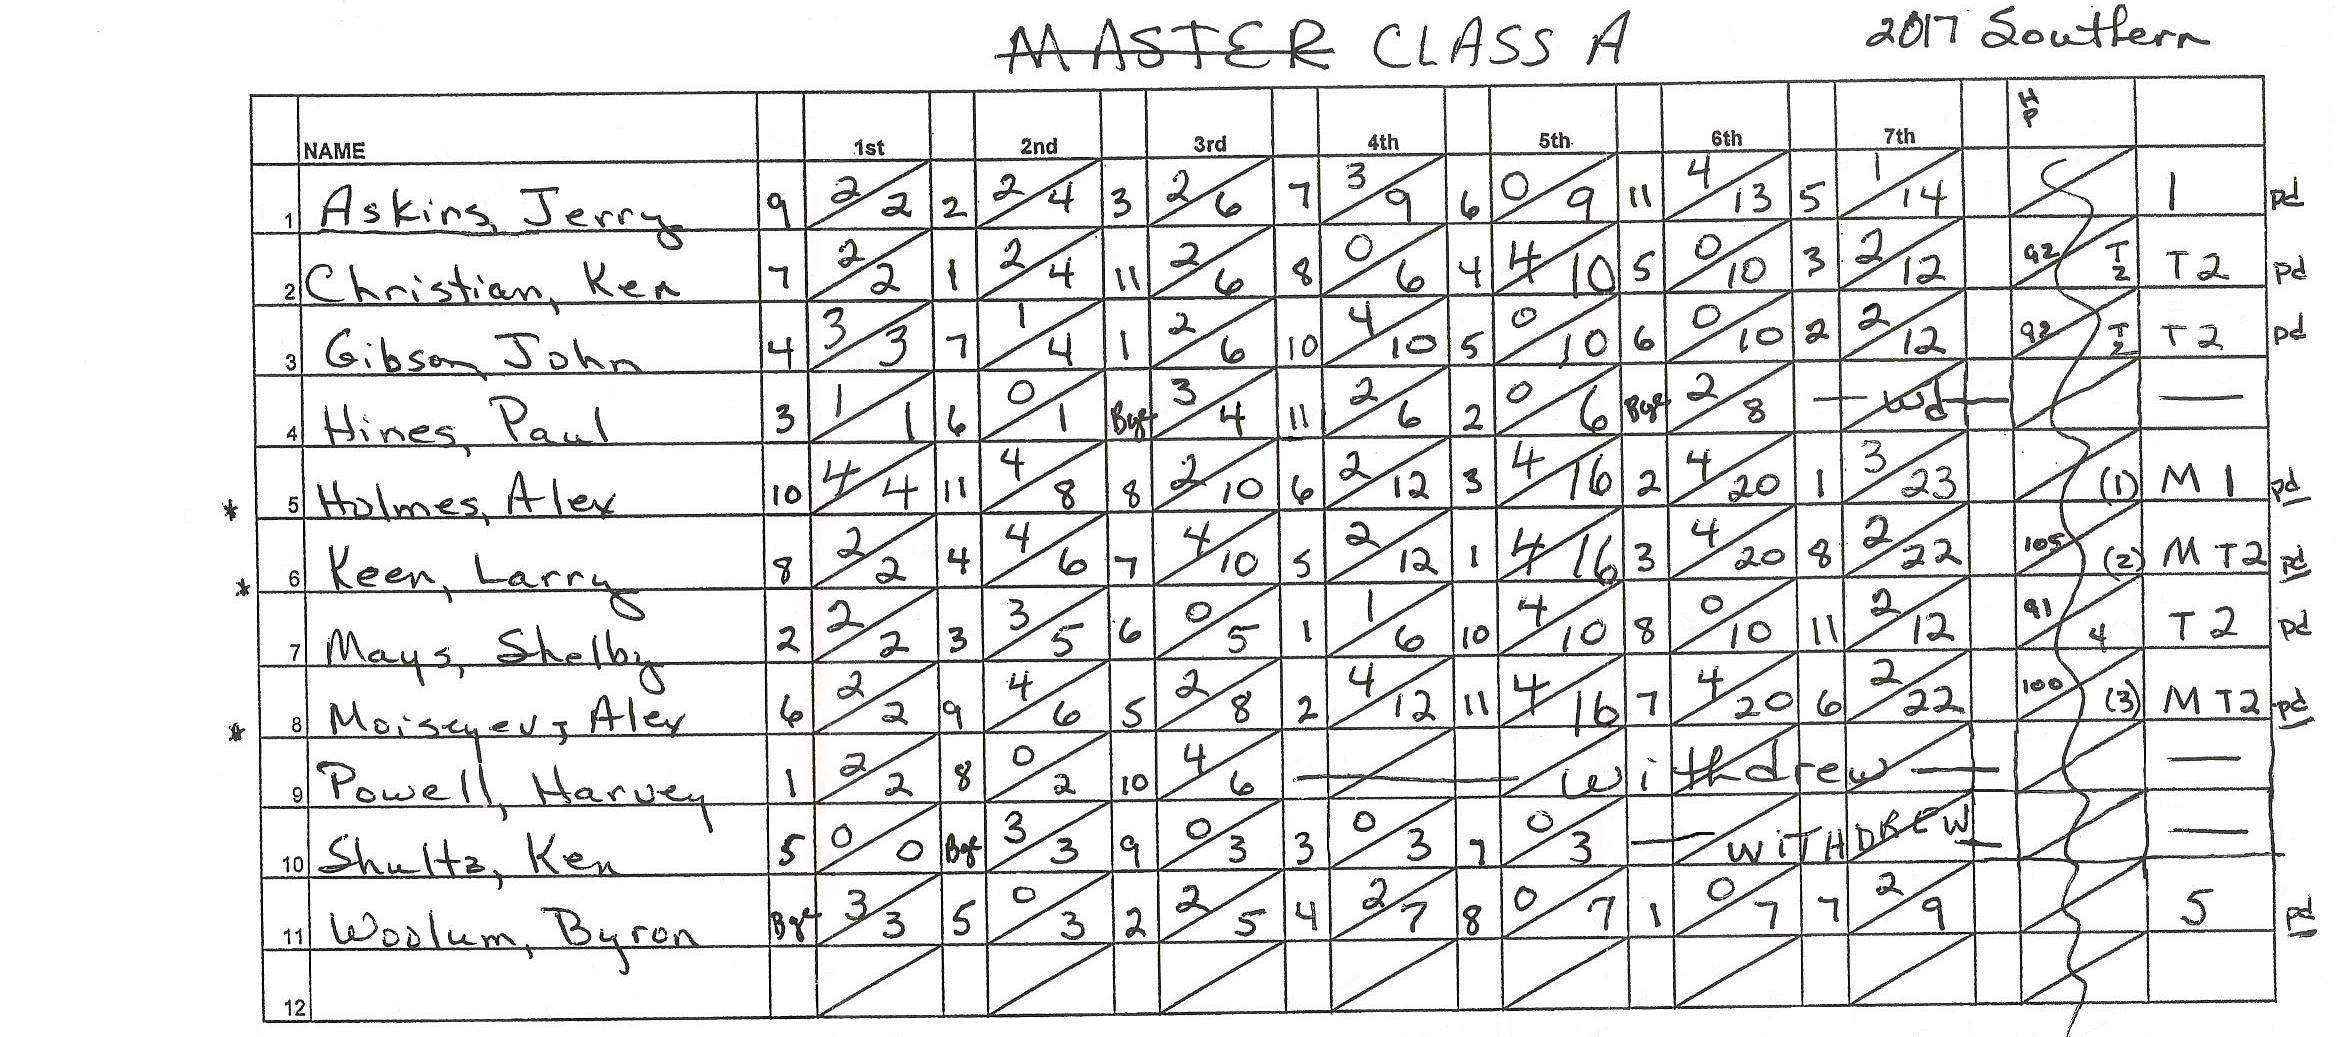 MASTER CLASS A 2017 Southern
NAME 1st 2nd 3rd 4th 5th 6th 7th HP
1 Askins, Jerry 9 2/2 2 2/4 3 2/6 7 3/9 6 0/9 11 4/13 5 1/14 1 pd
2 Christian, Ken 7 2/2 1 2/4 11 2/6 8 0/6 4 4/10 5 0/10 3 2/12 92/T2 T2 pd
3 Gibson, John 4 3/3 7 1/4 1 2/6 10 4/10 5 0/10 6 0/10 2 2/12 92/T2 T2 pd
4 Hines, Paul 3 1/1 6 0/1 Bye 3/4 11 2/6 2 0/6 Bye 2/8 — wd — —
* 5 Holmes, Alex 10 4/4 11 4/8 8 2/10 6 2/12 3 4/16 2 4/20 1 3/23 (1) M 1 pd
* 6 Keen, Larry 8 2/2 4 4/6 7 4/10 5 2/12 1 4/16 3 4/20 8 2/22 105/(2) M T2 pd
7 Mays, Shelby 2 2/2 3 3/5 6 0/5 1 1/6 10 4/10 8 0/10 11 2/12 91/4 T2 pd
* 8 Moiseyev, Alex 6 2/2 9 4/6 5 2/8 2 4/12 11 4/16 7 4/20 6 2/22 100/(3) M T2 pd
9 Powell, Harvey 1 2/2 8 0/2 10 4/6 — withdrew — —
10 Shultz, Ken 5 0/0 Bye 3/3 9 0/3 3 0/3 7 0/3 — WITHDREW — —
11 Woolum, Byron Bye 3/3 5 0/3 2 2/5 4 2/7 8 0/7 1 0/7 7 2/9 5 pd
12